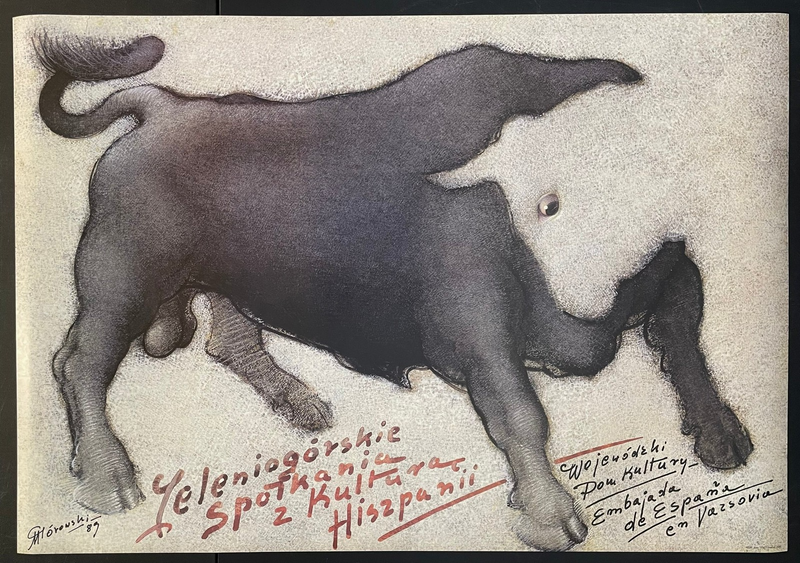 Jeleniogórskie
Spotkania
z Kulturą
Hiszpanii
Wojewódzki
Dom Kultury
Embajada
de España
en Varsovia
Górowski
89